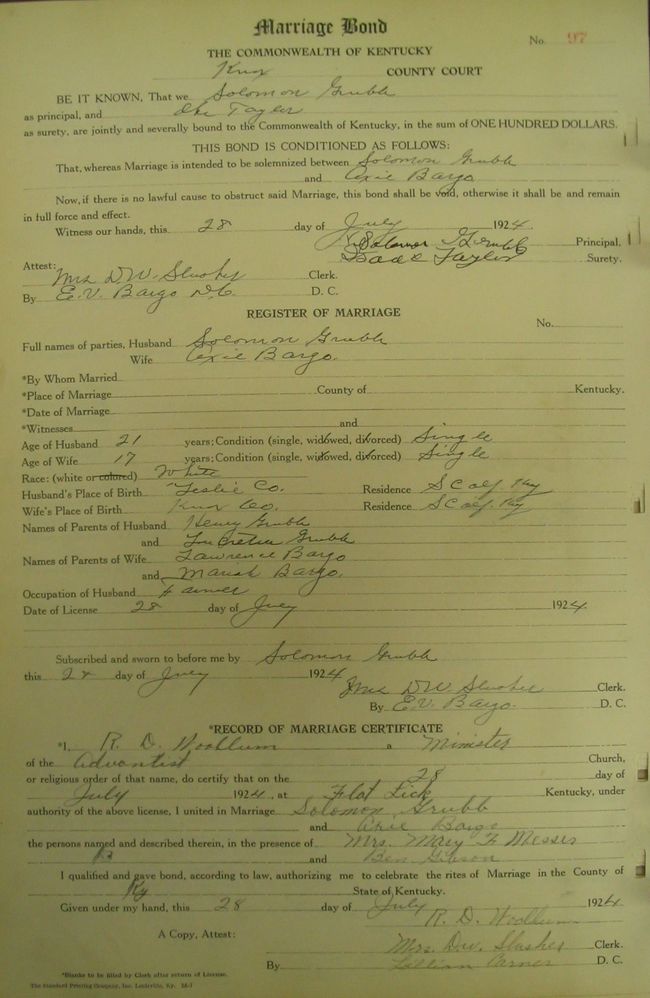 Marriage Bond
No. 97
THE COMMONWEALTH OF KENTUCKY
Knox COUNTY COURT
BE IT KNOWN, That we Solomon Grubb
as principal, and Taylor
as surety, are jointly and severally bound to the Commonwealth of Kentucky, in the sum of ONE HUNDRED DOLLARS.
THIS BOND IS CONDITIONED AS FOLLOWS:
That, whereas Marriage is intended to be solemnized between Solomon Grubb
and Bargo
Now, if there is no lawful cause to obstruct said Marriage, this bond shall be void, otherwise it shall be and remain
in full force and effect.
Witness our hands, this 28 day of July 1924.
Solomon Grubb Principal,
Taylor Surety.
Attest:
Mrs D.W. Slusher Clerk.
By E.V. Bargo D.C. D. C.
REGISTER OF MARRIAGE
No.
Full names of parties, Husband Solomon Grubb
Wife Bargo.
*By Whom Married
*Place of Marriage County of Kentucky.
*Date of Marriage
*Witnesses and
Age of Husband 21 years; Condition (single, widowed, divorced) Single
Age of Wife 17 years; Condition (single, widowed, divorced) Single
Race: (white or colored) White
Husband's Place of Birth Leslie Co. Residence Scalf, Ky
Wife's Place of Birth Knox Co. Residence Scalf, Ky
Names of Parents of Husband Henry Grubb
and Grubb
Names of Parents of Wife Lawrence Bargo
and Mariah Bargo,
Occupation of Husband Farmer
Date of License 28 day of July 1924
Subscribed and sworn to before me by Solomon Grubb
this 28 day of July 1924
Mrs D W Slusher Clerk.
By E.V. Bargo. D. C.
*RECORD OF MARRIAGE CERTIFICATE
*I, R. D. Woollum a Minister
of the Advantist Church,
or religious order of that name, do certify that on the 28 day of
July 1924, at Flat Lick Kentucky, under
authority of the above license, I united in Marriage Solomon Grubb
and Bargo
the persons named and described therein, in the presence of Mrs. Mary F Messer
and Ben Gibson
I qualified and gave bond, according to law, authorizing me to celebrate the rites of Marriage in the County of
Ky State of Kentucky.
Given under my hand, this 28 day of July 1924
R. D. Woollum
A Copy, Attest:
Mrs. D.W. Slusher Clerk.
By Lillian D. C.
*Blanks to be filled by Clerk after return of License.
The Standard Printing Company, Inc. Louisville, Ky.